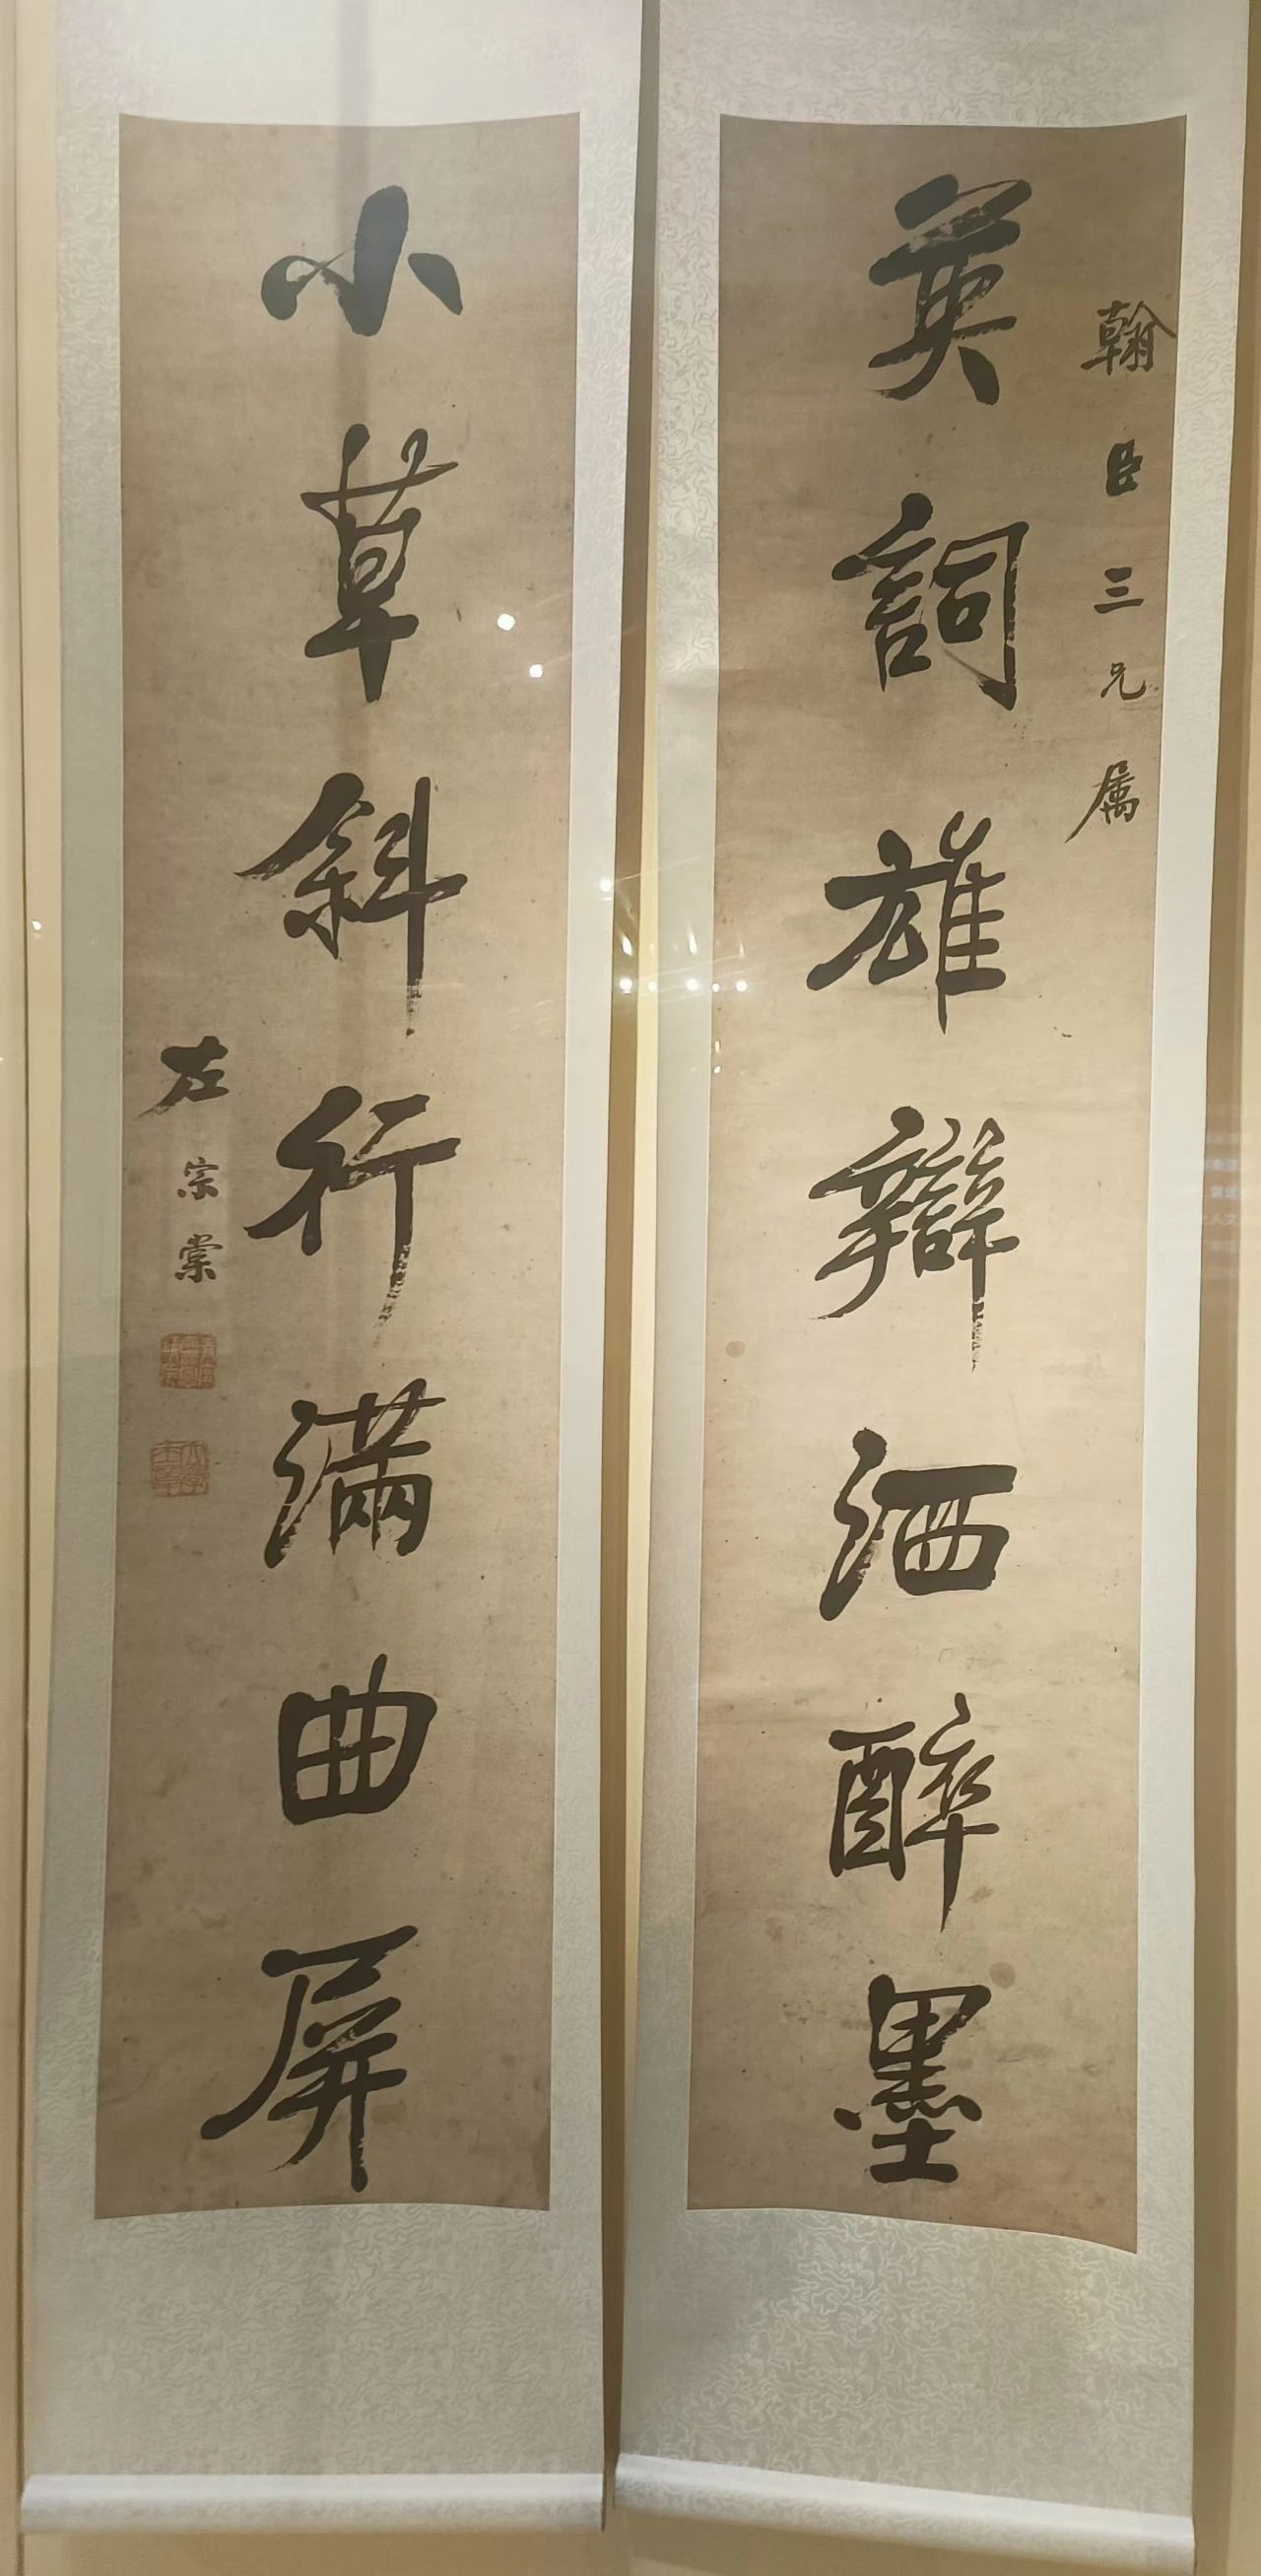 翰臣三兄属
英詞雄辯洒醉墨
小草斜行滿曲屏
左宗棠